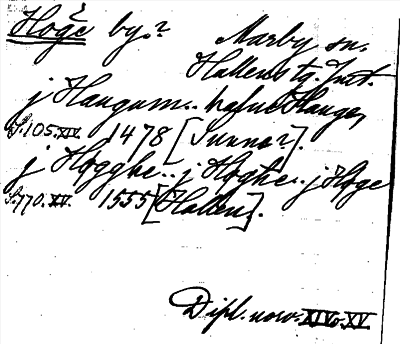 Höge by.? Marby sn.
Hallens tg. Jmt.
j Haugum.. hafut Haugen
S.105.XIV. 1478 [Sunne?].
j Høgghe.. j Høghe.. j Høge
S.770.XV. 1555 [Hallen].
Dipl. norv. XIV o. XV.